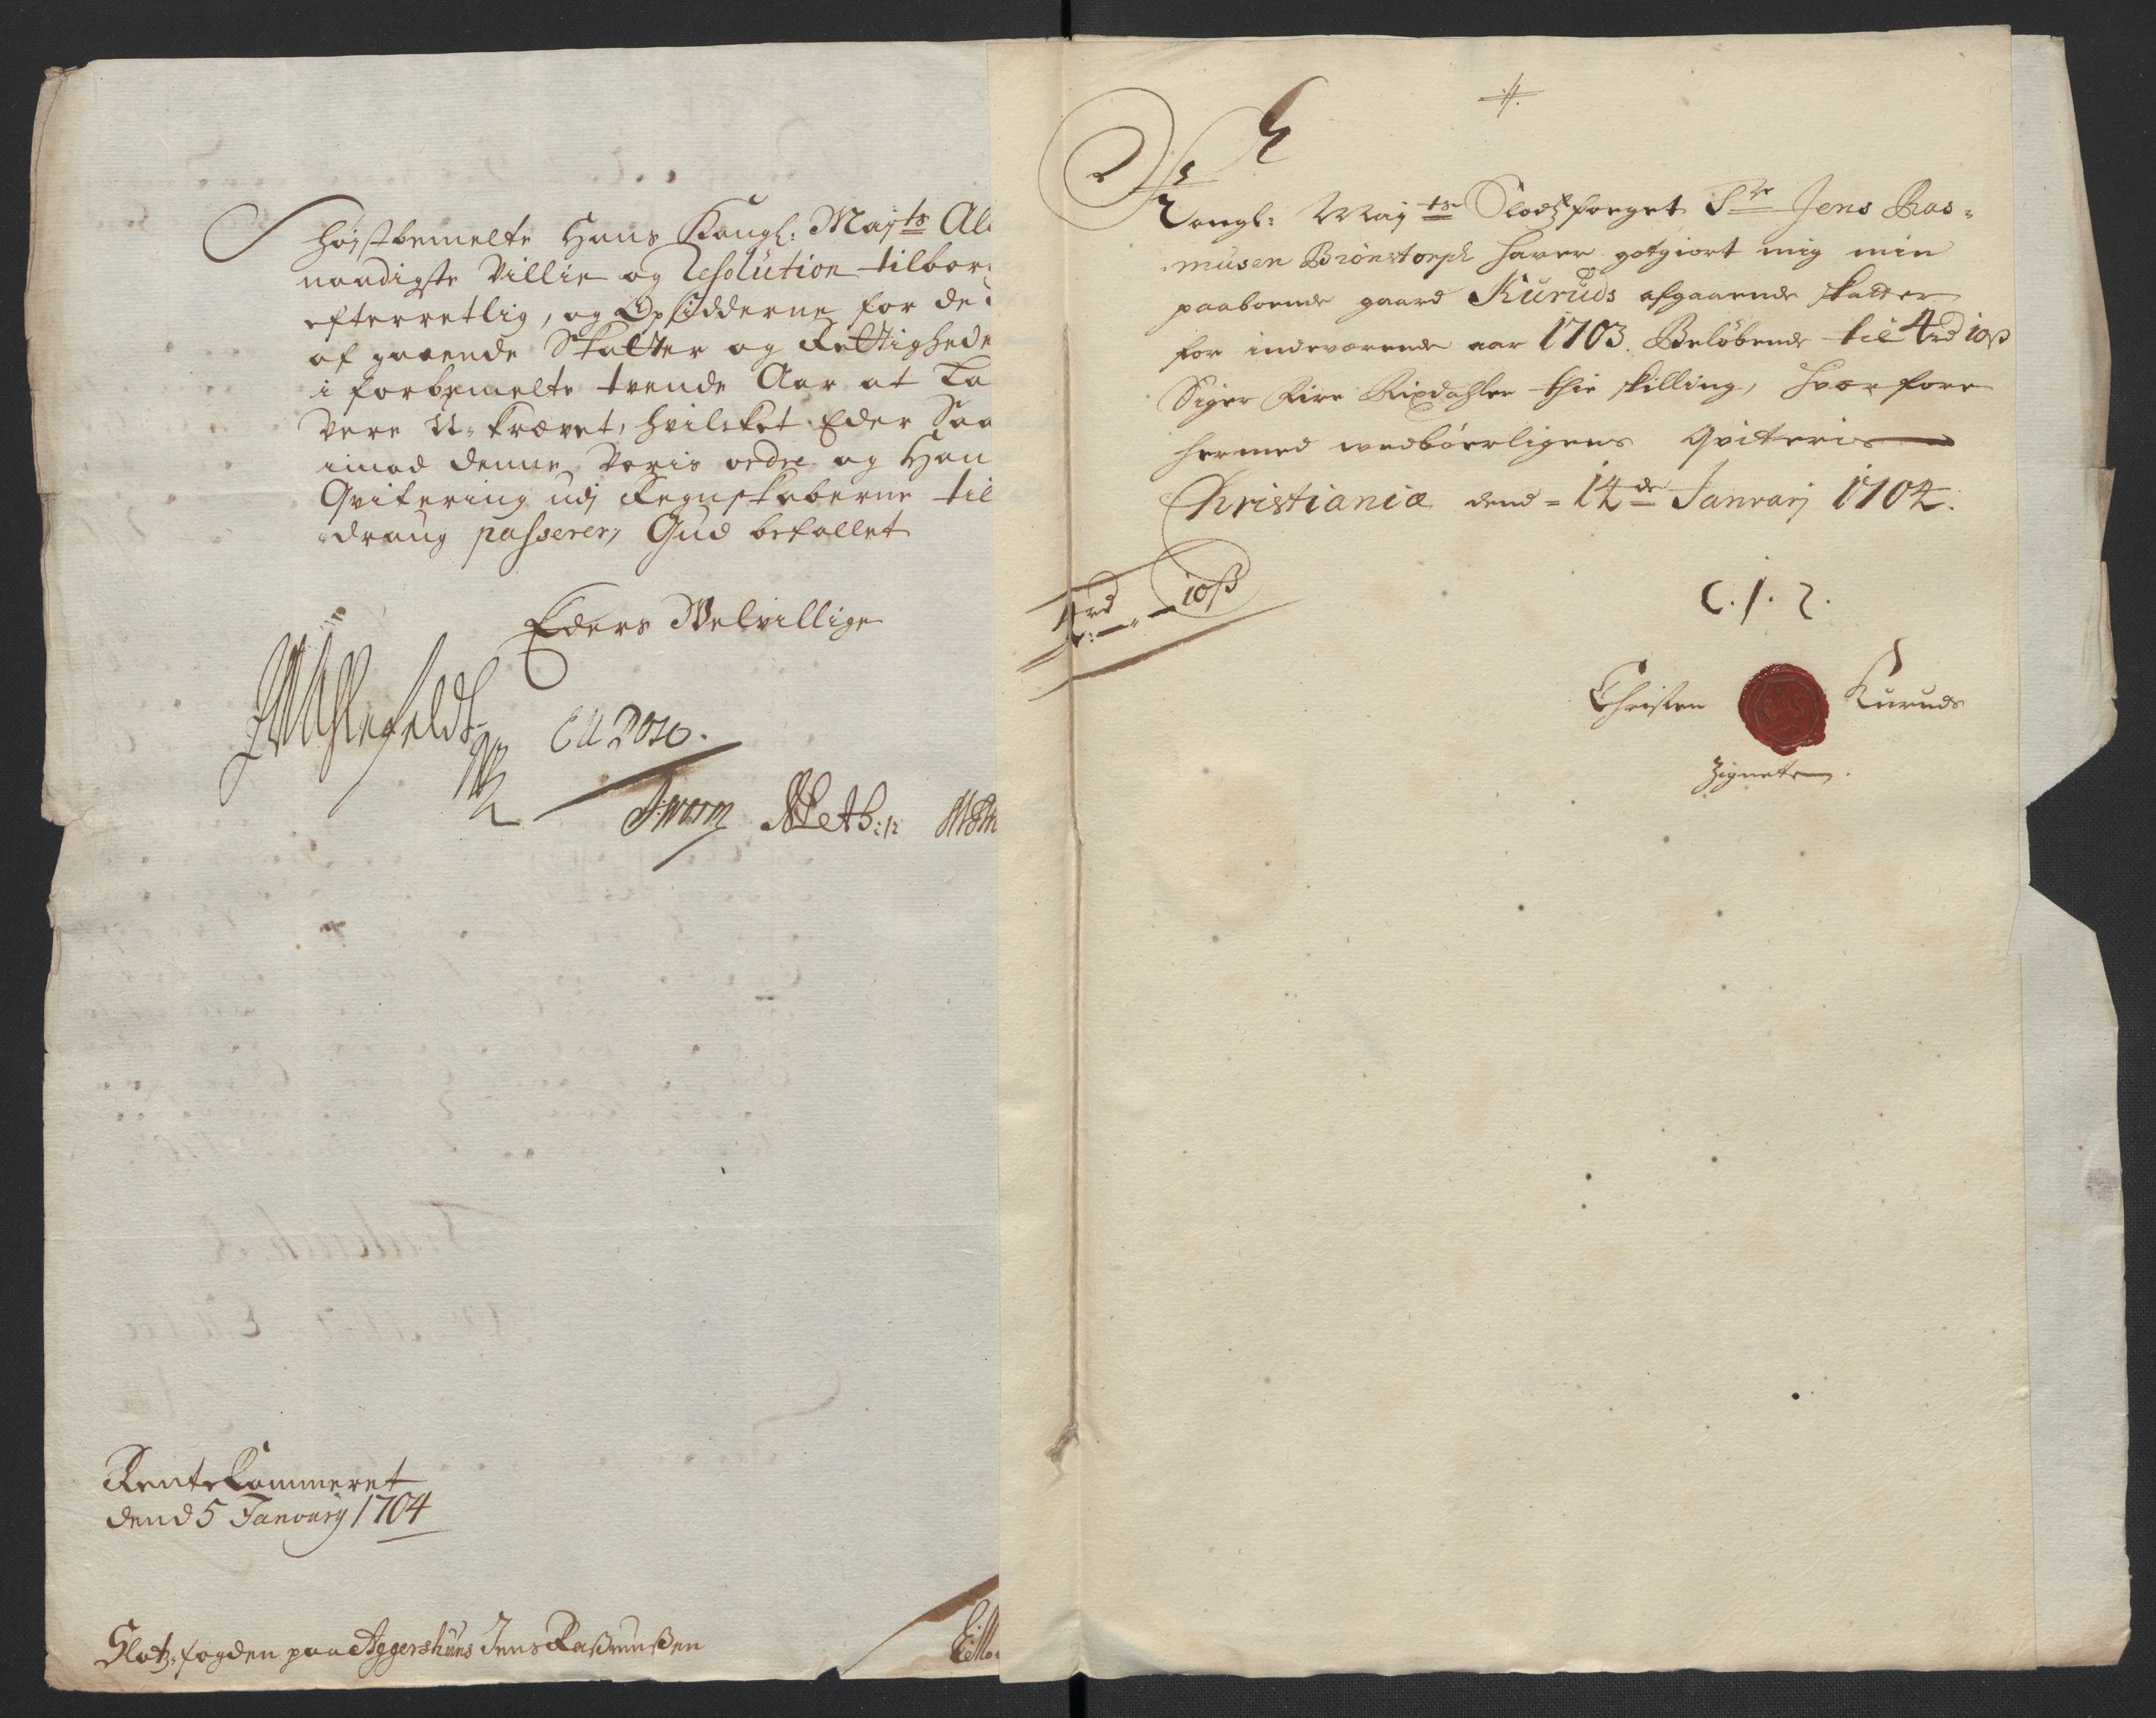 høistbemelte Hans Kongl: Maj.ts Al
naadigste Villie og Resolution tilbør
efterretlig, og Opsidderne for de
af gaaende Skatter og Rettighede
i forbemelte tvende Aar at
være U-krævet, hvilcket Eder Saa
imod denne Voris ordre og Han
Qvitering udj Regnskaberne til
draug passerer, Gud befallet
Eders Velvillige
Rentekammeret
dend 5 January 1704
Slotz-fogden paa Aggershuus Jens Rasmussen
Kongl: May.ts Slodtzfoeget Sr Jens Ras-
musen Brönstorph hafver gotgiort mig min
paaboende gaard Kuruds afgaaende skatter
for indeværende aar 1703. Beløbende til 4rd 10ß
Siger Fire Rixdahler thie skilling, hvorfore
hermed wedbörligens Qviteris
Christiania dend = 14de Janvarj 1704.
4rd 10ß
C. J. S.
Christen Kuruds
Zignete